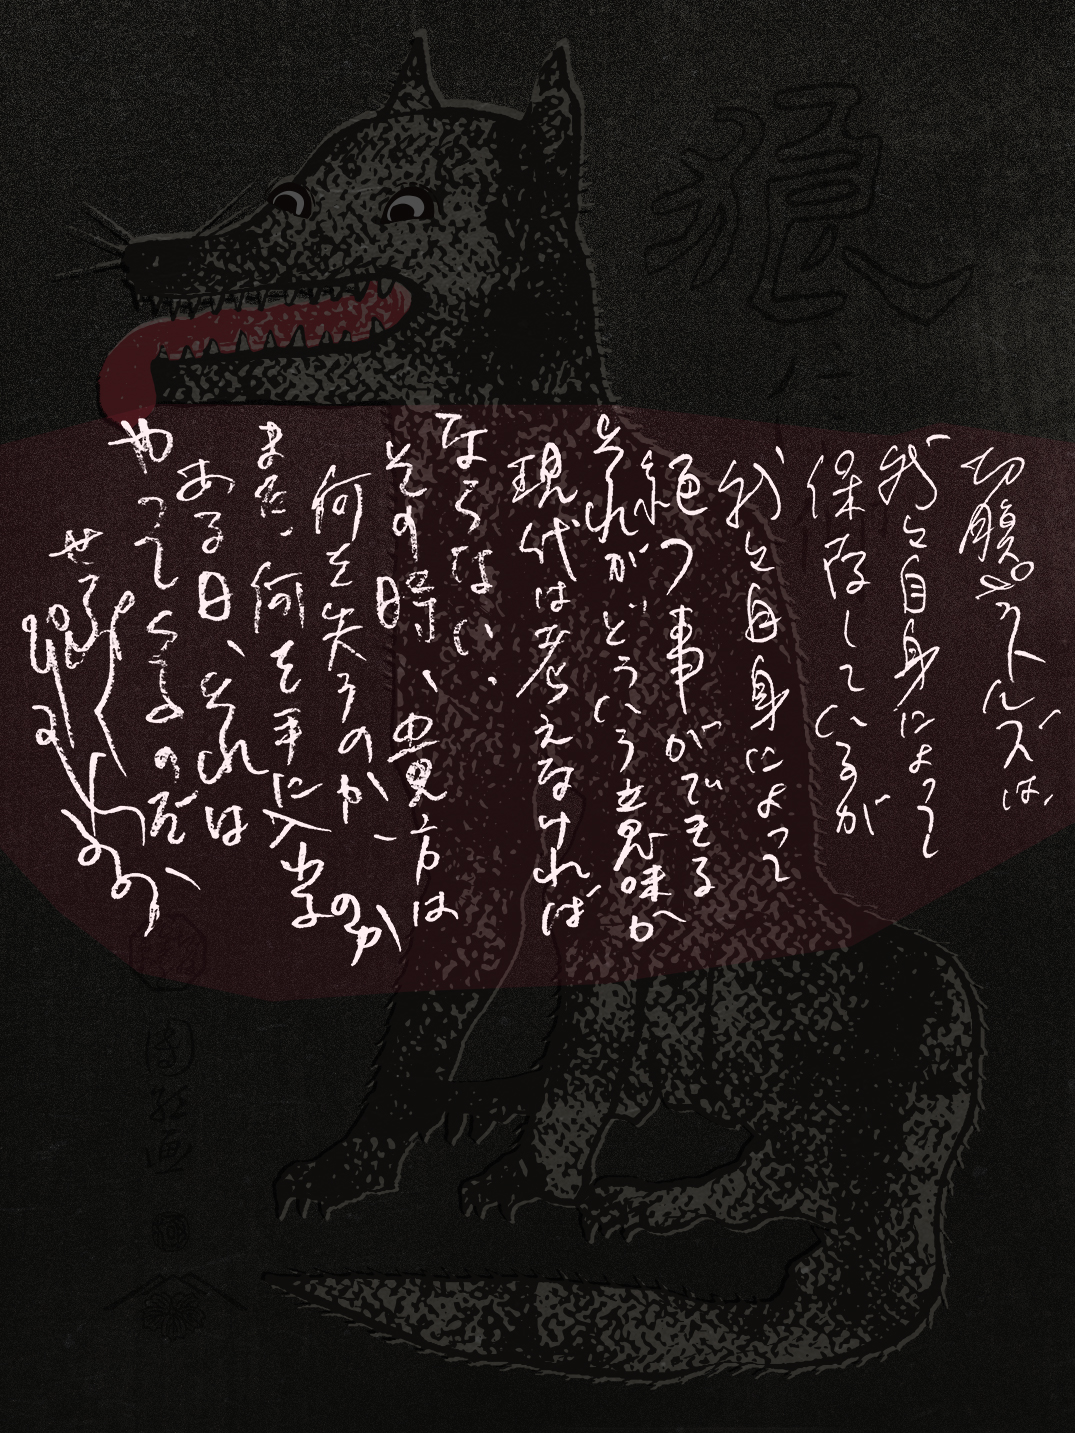 狼
切腹ピストルズは、
我々自身によって
保障しているが
我々自身によって
絶つ事ができる
それがどういう意味か
現代は考えなければ
ならない、
その時、貴方は
何を失うのか、
また、何を手に入のか
ある日、それは
やってくるのだ、